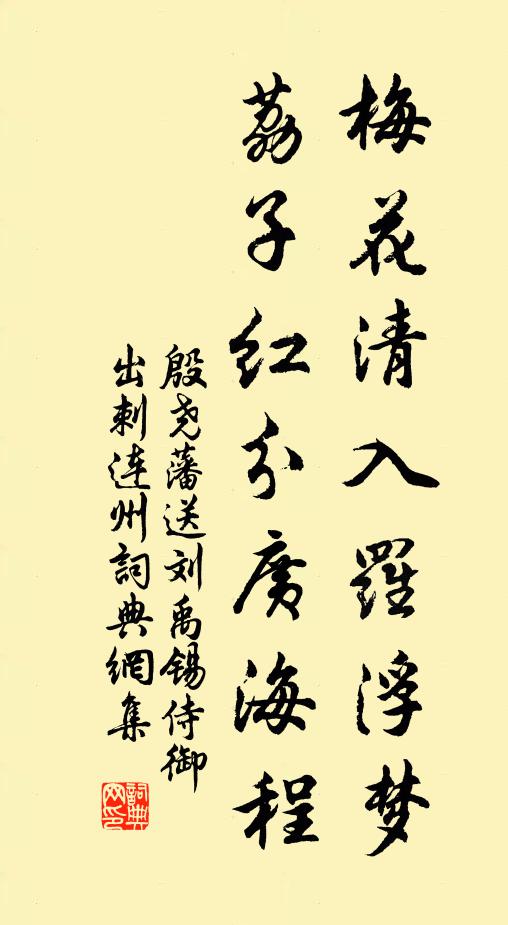 梅花清入羅浮梦
荔子红分廣海程
殷尧藩送刘禹锡侍御
出刺连州詞典網集
詞典
网印